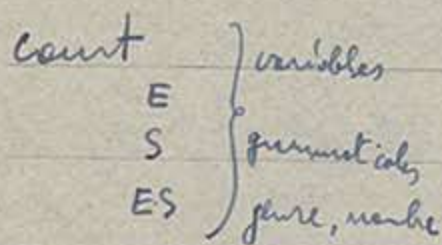 court
variables
E
S
grammaticales
ES
genre, nombre